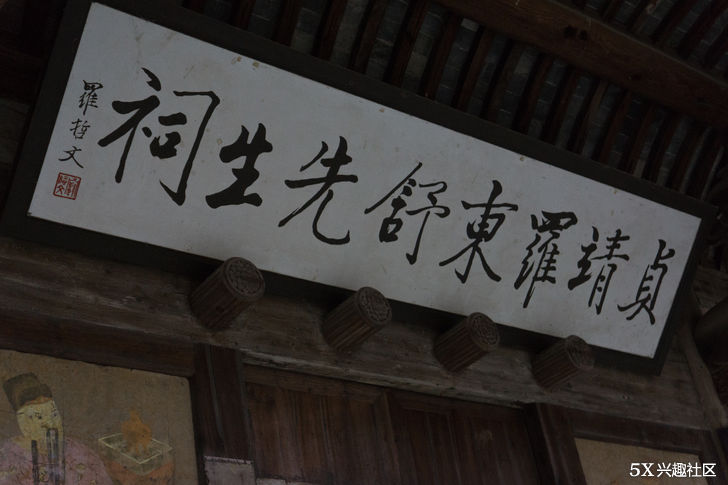 貞靖羅東舒先生祠
羅哲文
5X兴趣社区